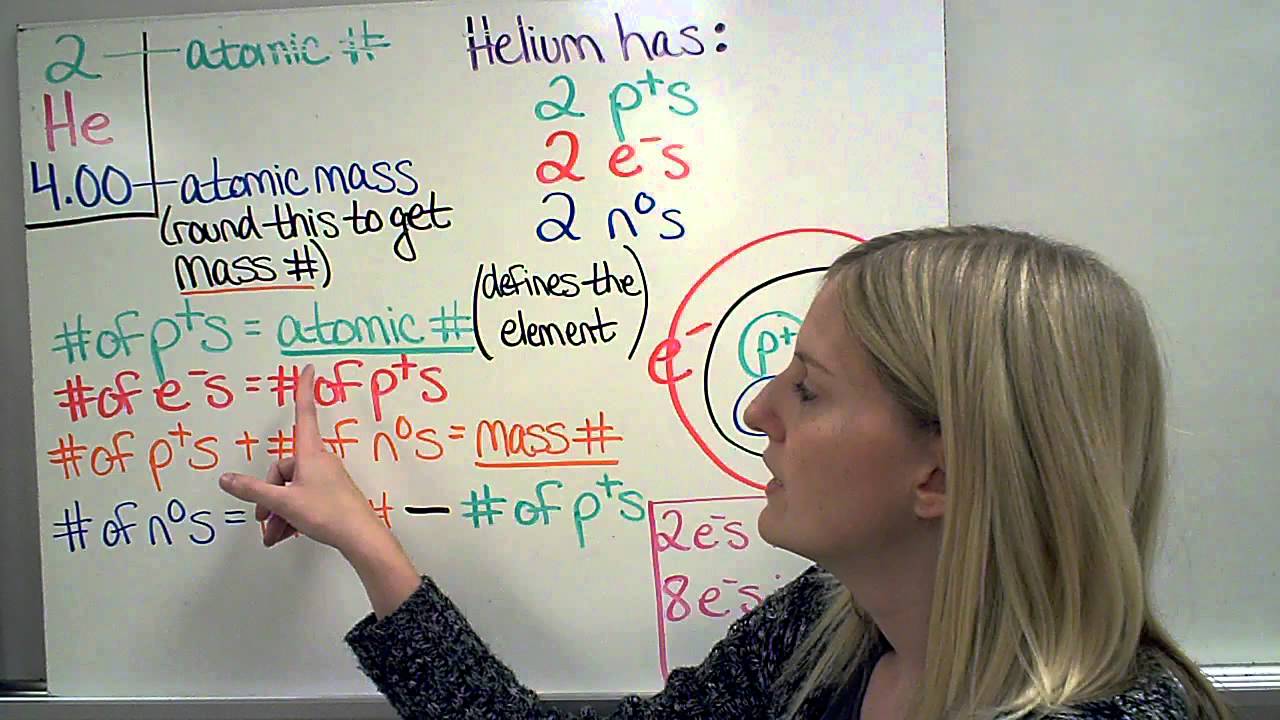 2 — atomic #
He
4.00 — atomic mass
(round this to get
mass #)
Helium has:
2 p⁺s
2 e⁻s
2 n⁰s
# of p⁺s = atomic # (defines the
element)
# of e⁻s = # of p⁺s
# of p⁺s + # of n⁰s = mass #
# of n⁰s = # — # of p⁺s
e⁻
p⁺
2e⁻s
8e⁻s